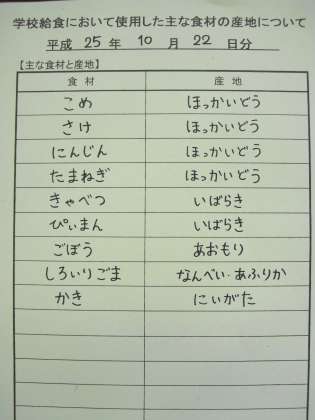 学校給食において使用した主な食材の産地について
平成 25 年 10 月 22 日分
【主な食材と産地】
食材 産地
こめ ほっかいどう
さけ ほっかいどう
にんじん ほっかいどう
たまねぎ ほっかいどう
きゃべつ いばらき
ぴぃまん いばらき
ごぼう あおもり
しろいりごま なんべい・あふりか
かき にいがた